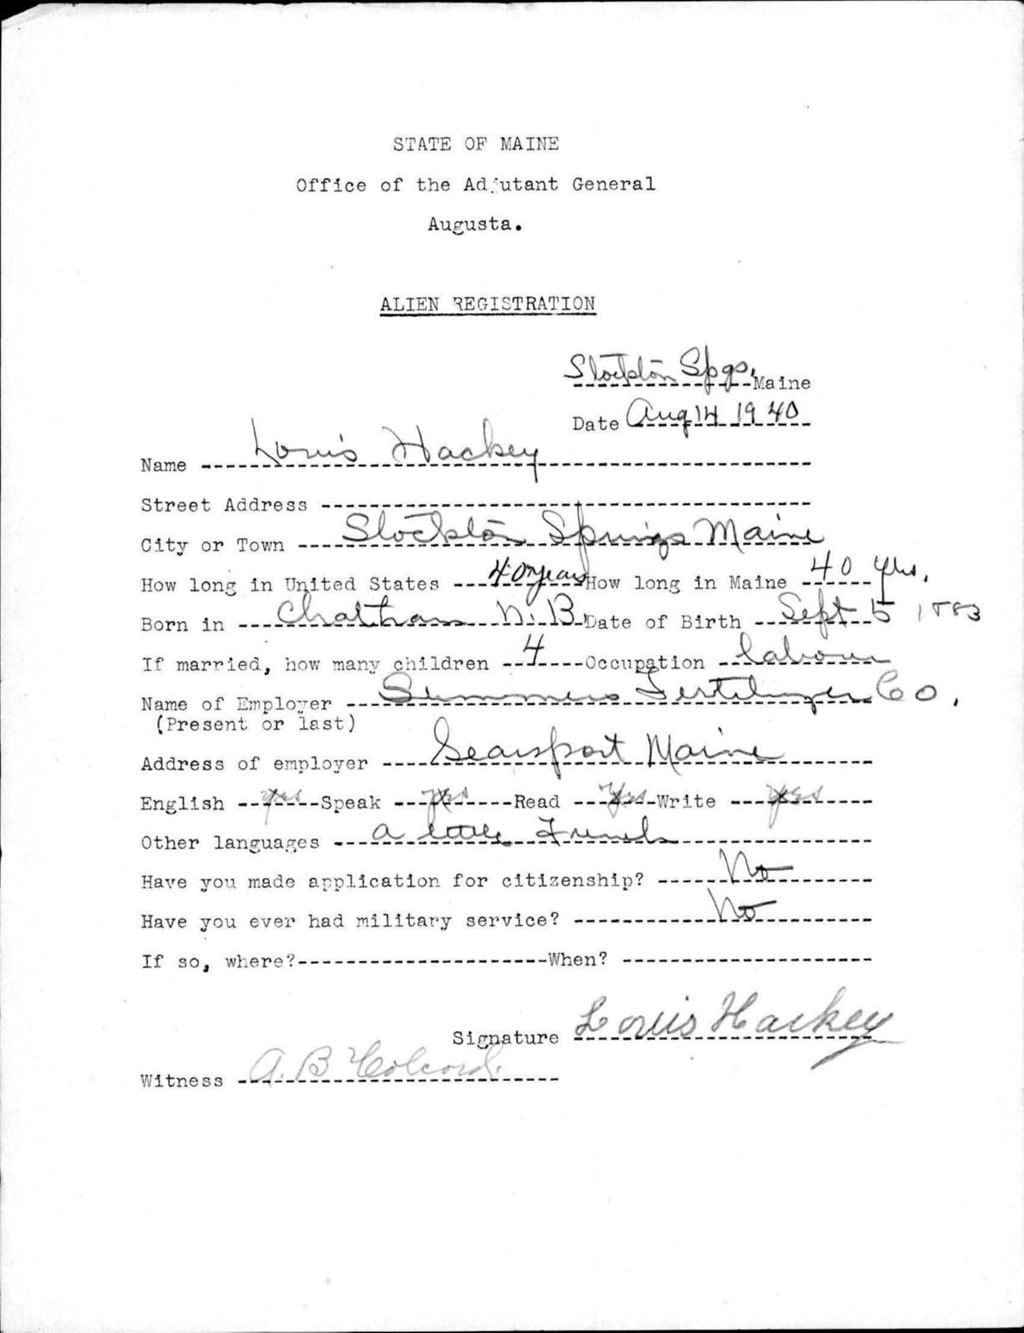 STATE OF MAINE
Office of the Adjutant General
Augusta.
ALIEN REGISTRATION
Stockton Spgs. Maine
Date Aug 14 1940
Name Louis Hackey
Street Address
City or Town Stockton Springs Maine
How long in United States 40 years How long in Maine 40 yrs.
Born in Chatham N.B. Date of Birth Sept 5 1883
If married, how many children 4 Occupation labour
Name of Employer Summers Fertilizer Co.
(Present or last)
Address of employer Searsport Maine
English yes Speak yes Read Yes Write yes
Other languages a little French
Have you made application for citizenship? No
Have you ever had military service? No
If so, where? When?
Signature Louis Hackey
Witness A. B Colcord.